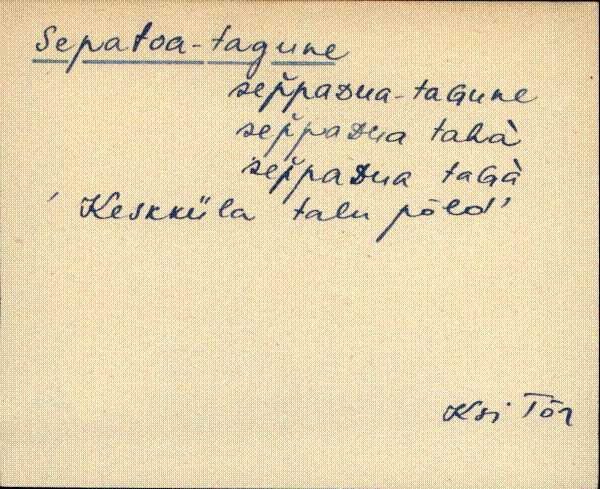 Sepatoa-tagune
sep̆paᴅua-taGune
sep̆paᴅua tahà
sep̆paᴅua taGà
' Keskküla talu põld'
Ksi Tõr